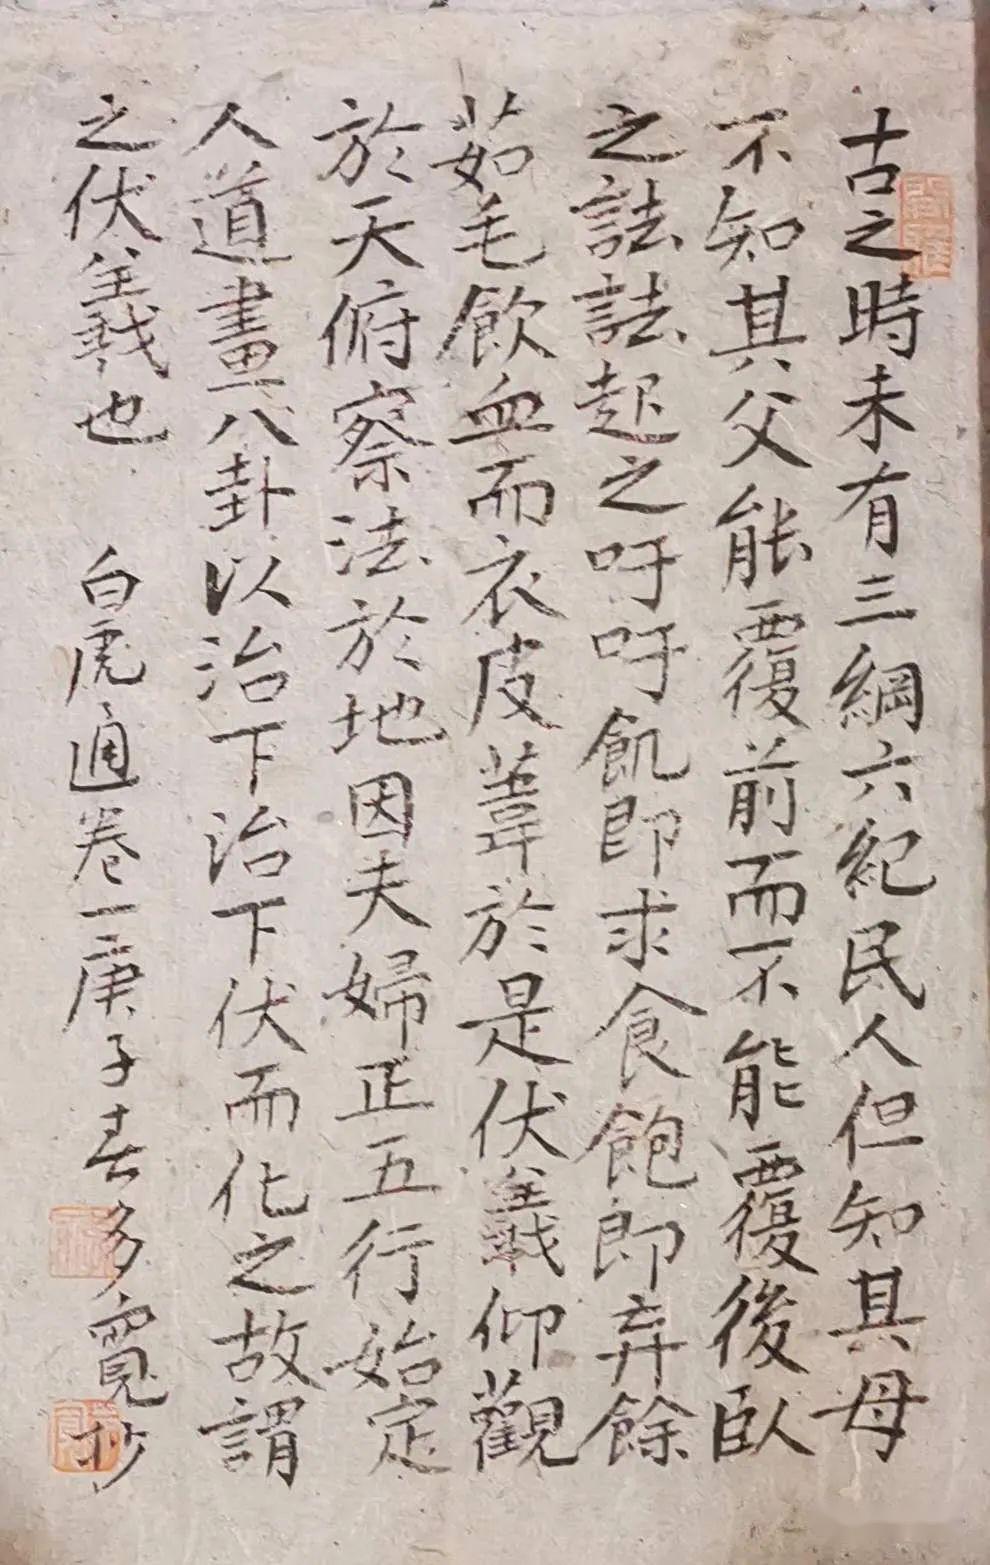 古之時未有三綱六紀民人但知其母
不知其父能覆前而不能覆後臥
之詓詓起之吁吁飢即求食飽即弃餘
茹毛飲血而衣皮葦於是伏羲仰觀
於天俯察法於地因夫婦正五行始定
人道畫八卦以治下治下伏而化之故謂
之伏羲也 白虎通卷一庚子春多寬抄